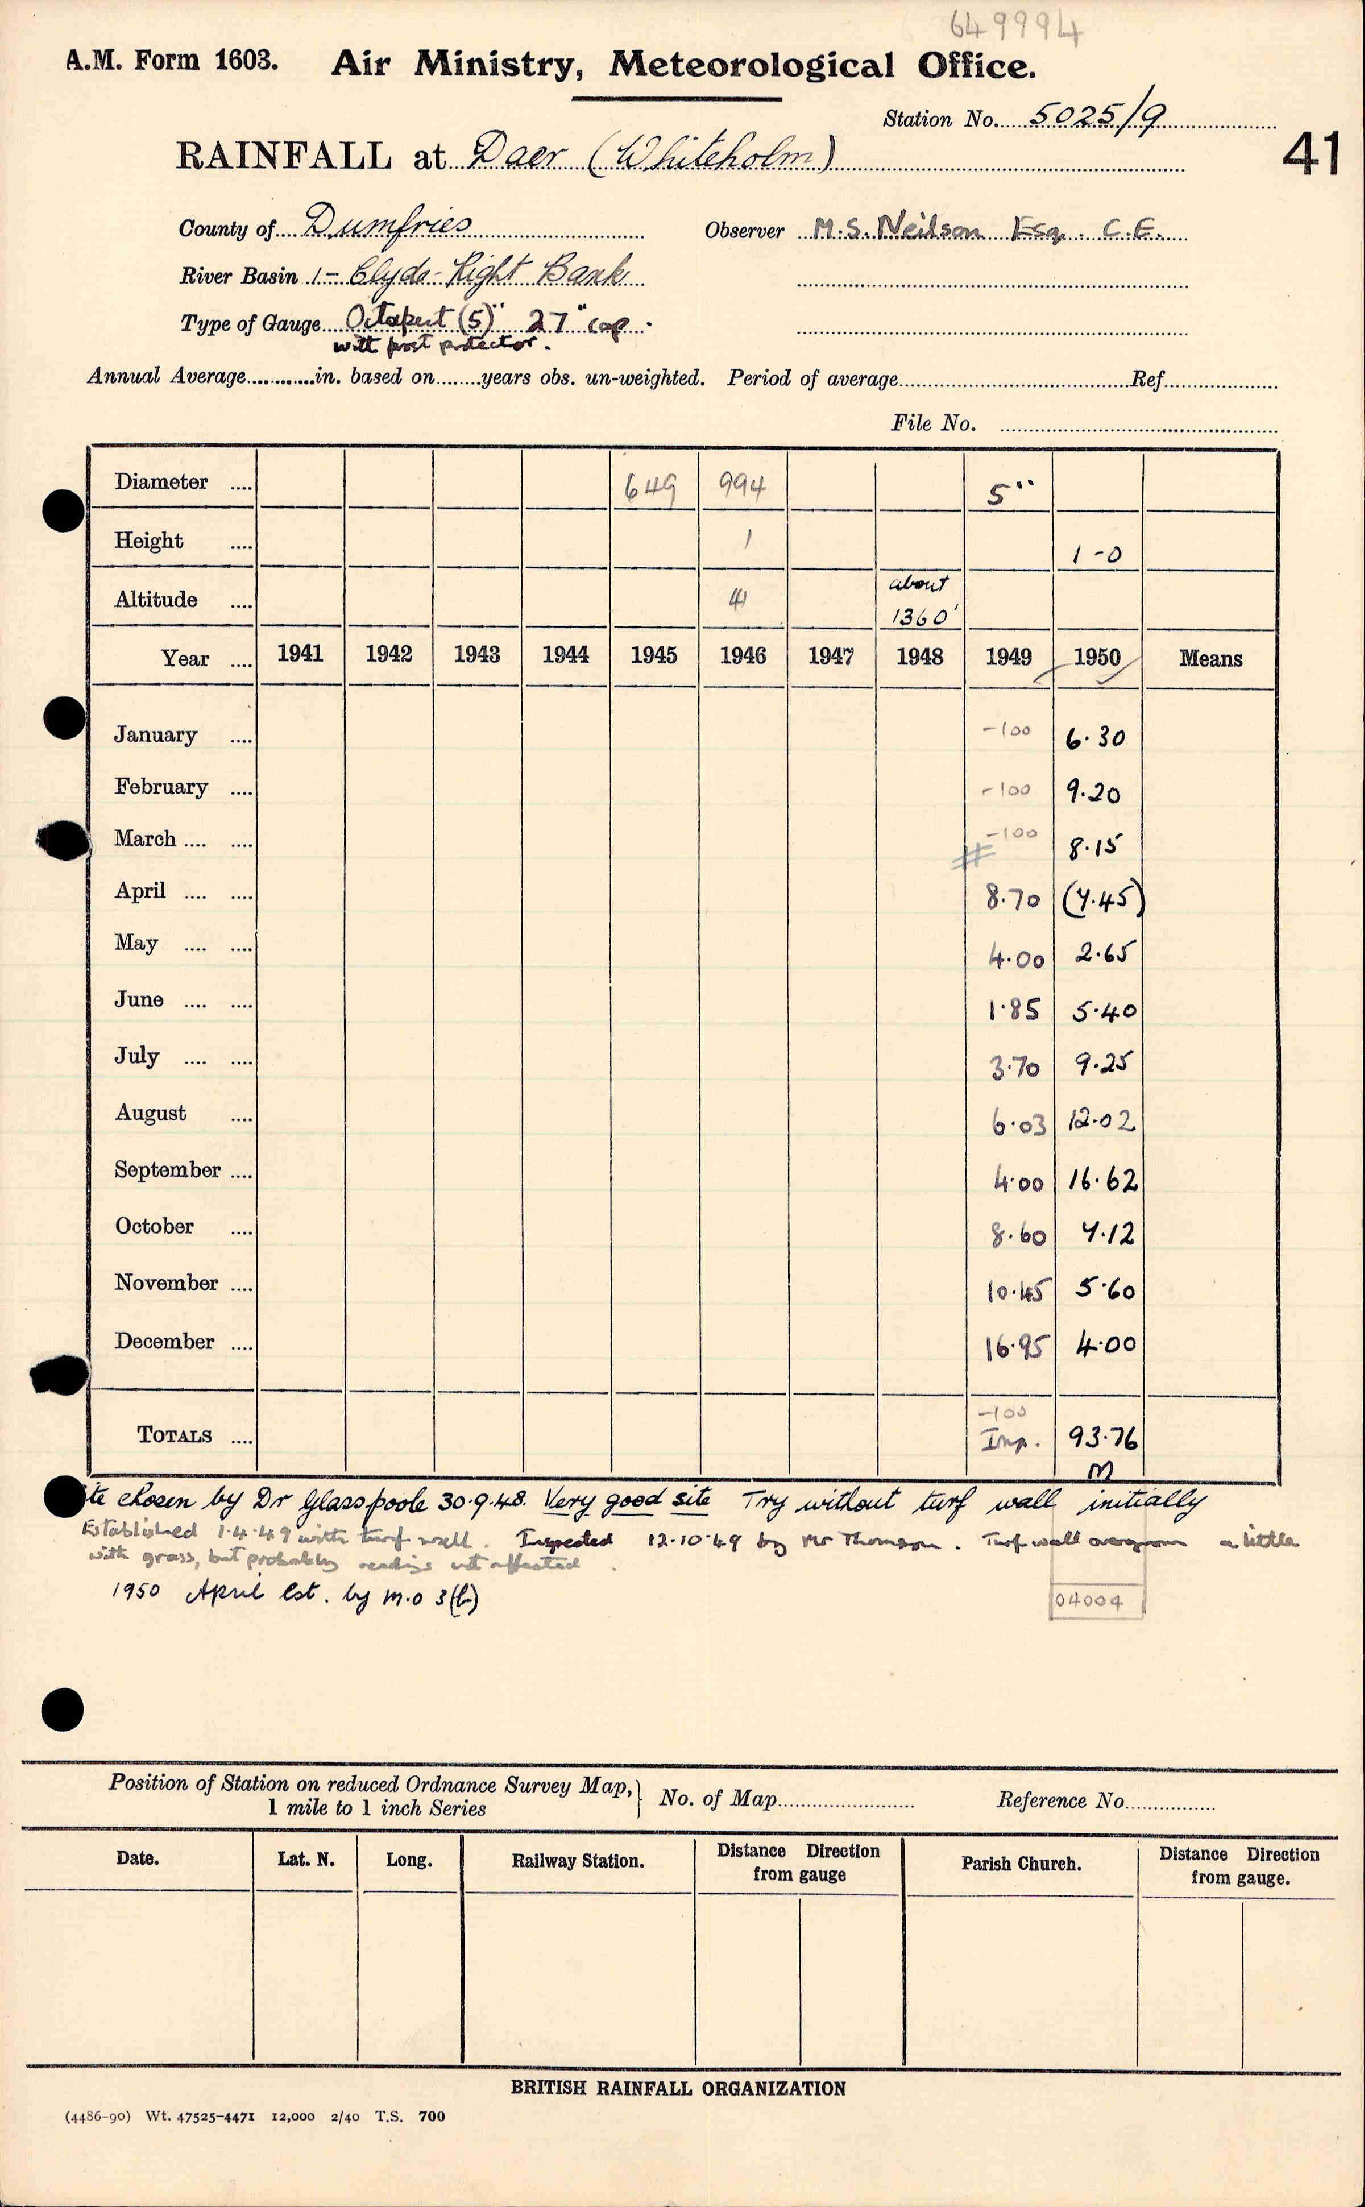 649994
A.M. Form 1603. Air Ministry, Meteorological Office.
Station No. 5025/9
RAINFALL at Daer (Whiteholm)
41
County of Dumfries Observer M.S. Neilson Esq. C.E.
River Basin 1- Clyde - Right Bank
Type of Gauge Octapent (5)" 27" cap.
with frost protector.
Annual Average............in. based on........years obs. un-weighted. Period of average Ref.
File No.
Diameter .... 649 994 5"
Height .... 1 1-0
Altitude .... 41 about 1360'
Year .... 1941 1942 1943 1944 1945 1946 1947 1948 1949 1950 Means
January .... -100 6.30
February .... -100 9.20
March .... .... -100 8.15
#
April .... .... 8.70 (7.45)
May .... .... 4.00 2.65
June .... .... 1.85 5.40
July .... .... 3.70 9.25
August .... 6.03 12.02
September .... 4.00 16.62
October .... 8.60 7.12
November .... 10.45 5.60
December .... 16.95 4.00
-100
TOTALS .... Imp. 93.76
M
te chosen by Dr Glasspoole 30.9.48. Very good site Try without turf wall initially
Established 1.4.49 with turf wall. Inspected 12.10.49 by Mr Thomson. Turf wall overgrown a little
with grass, but probably readings not affected.
1950 April Est. by M.O 3(b)
04004
Position of Station on reduced Ordnance Survey Map,} No. of Map Reference No.
1 mile to 1 inch Series
Date. Lat. N. Long. Railway Station. Distance from gauge Direction Parish Church. Distance Direction from gauge.
BRITISH RAINFALL ORGANIZATION
(4486-90) Wt. 47525-4471 12,000 2/40 T.S. 700